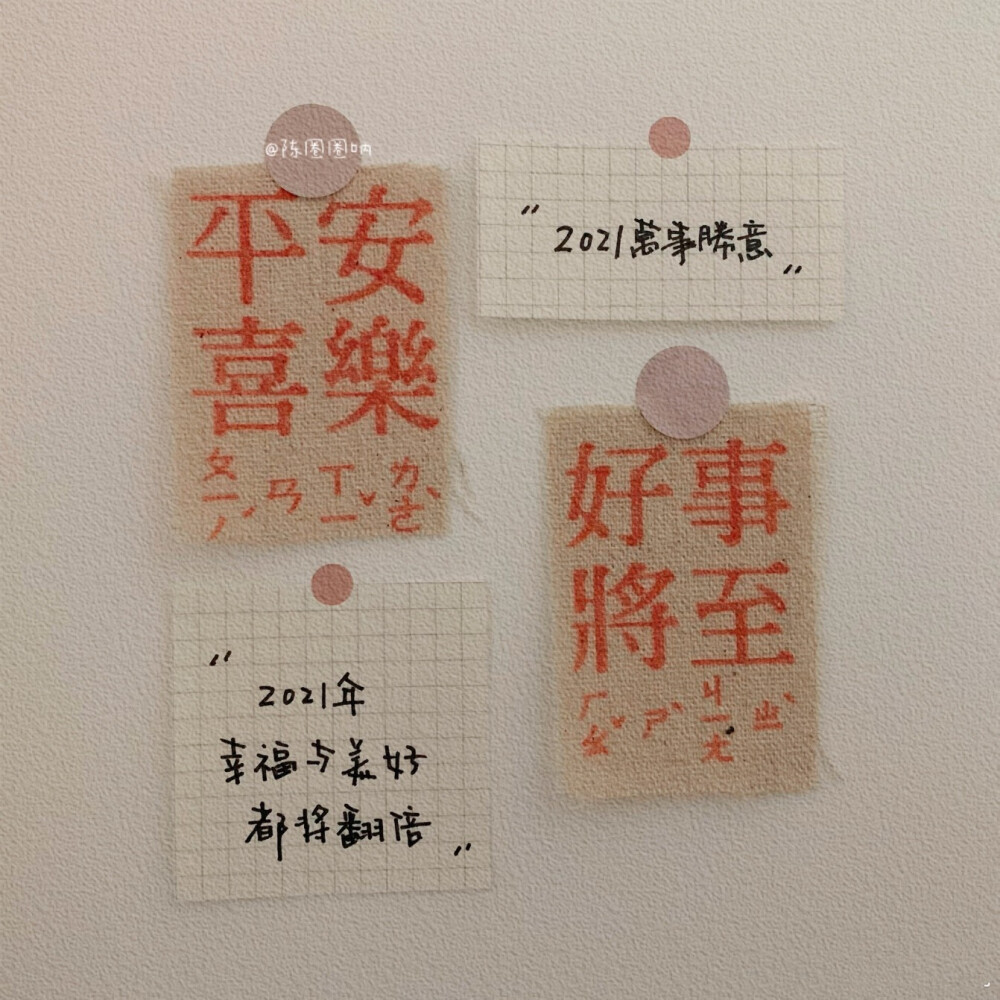 @陈圈圈呐
平安
喜樂
"2021萬事勝意"
好事
將至
ㄏㄠˇ ㄕˋ ㄐㄧㄤ ㄓˋ
"2021年
幸福与美好
都将翻倍"